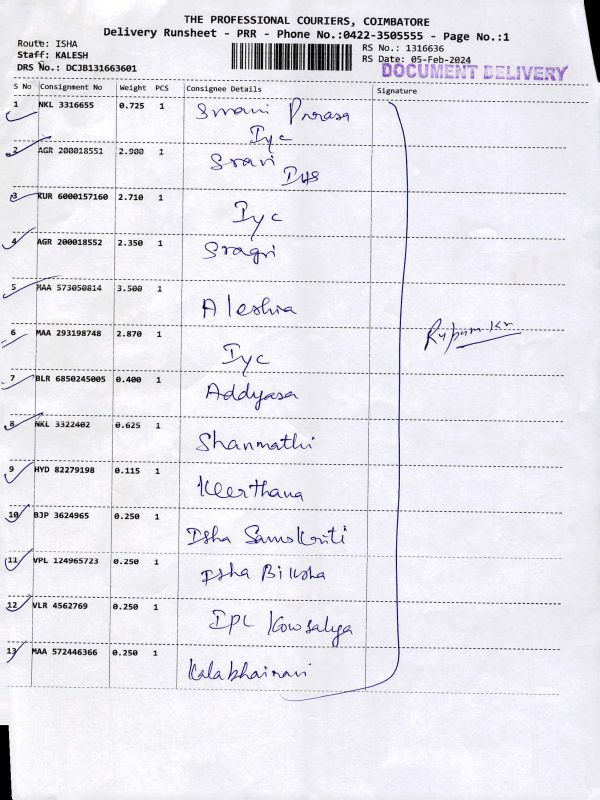 THE PROFESSIONAL COURIERS, COIMBATORE
Delivery Runsheet - PRR - Phone No.:0422-3505555 - Page No.:1
Route: ISHA
Staff: KALESH
DRS No.: DCJB131663601
RS No.: 1316636
RS Date: 05-Feb-2024
DOCUMENT DELIVERY
S No Consignment No Weight PCS Consignee Details Signature
1 NKL 3316655 0.725 1 Swami
Iyc
2 AGR 200018551 2.900 1 Sravi
IHS
3 KUR 6000157160 2.710 1 Iyc
4 AGR 200018552 2.350 1 Sragvi
5 MAA 573050814 3.500 1 Aleshia
6 MAA 293198748 2.870 1 Iyc
7 BLR 6850245005 0.400 1 Addyasa
8 NKL 3322402 0.625 1 Shanmathi
9 HYD 82279198 0.115 1 Keerthana
10 BJP 3624965 0.250 1 Isha Samskriti
11 VPL 124965723 0.250 1 Isha Biksha
12 VLR 4562769 0.250 1 IPC Kowsalya
13 MAA 572446366 0.250 1 Kalabhairavi